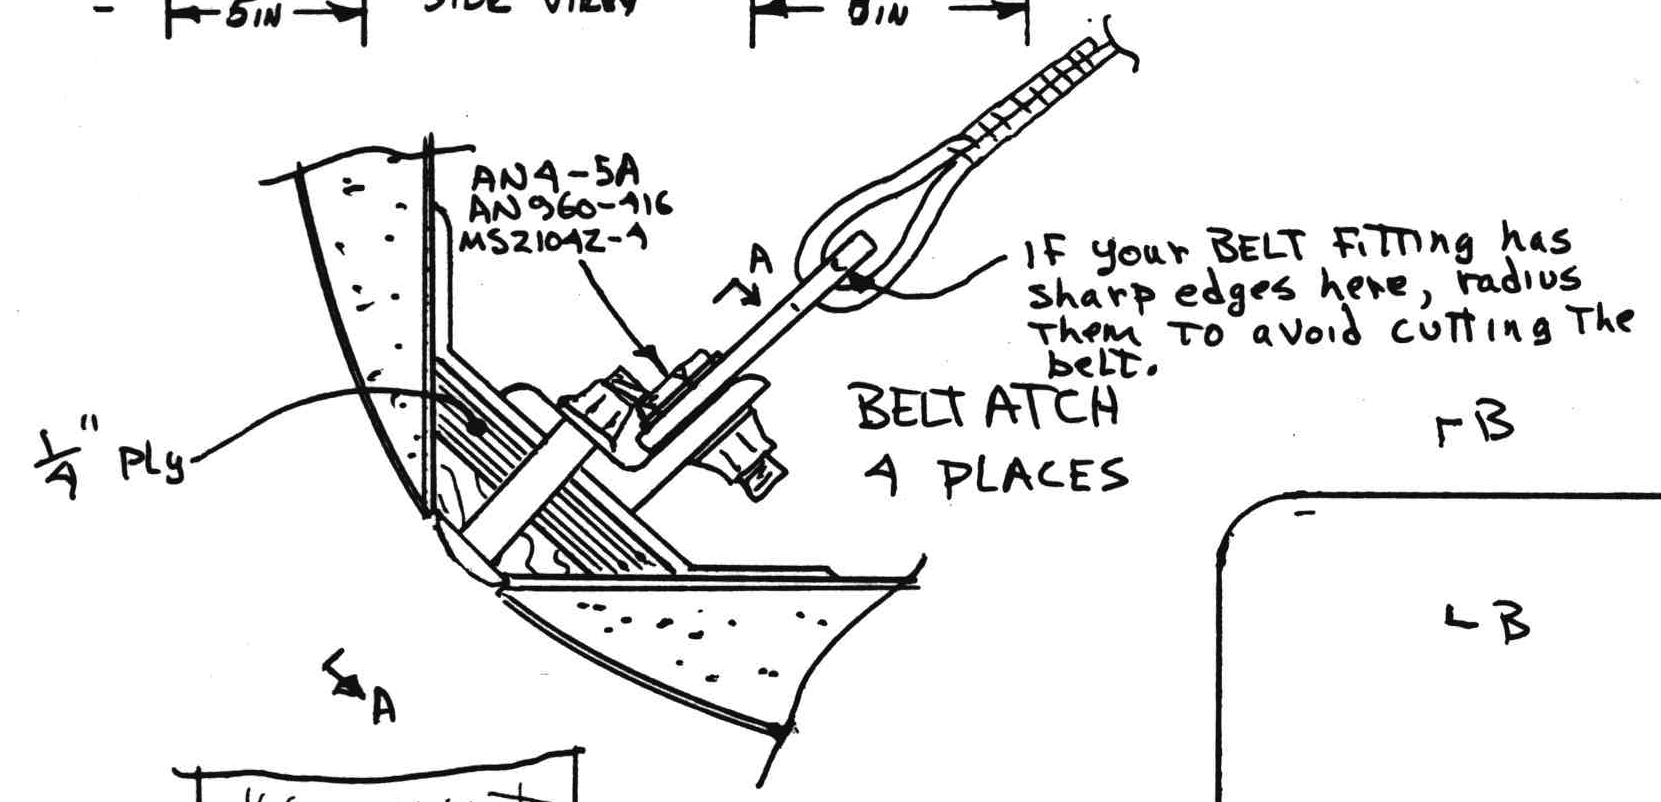 5IN
SIDE VIEW
AN4-5A
AN960-416
MS21042-4
A
IF your BELT FITTING has
sharp edges here, radius
Them TO avoid cuTTing The
belT.
BELT ATCH
4 PLACES
B
1/4" PLY
B
A